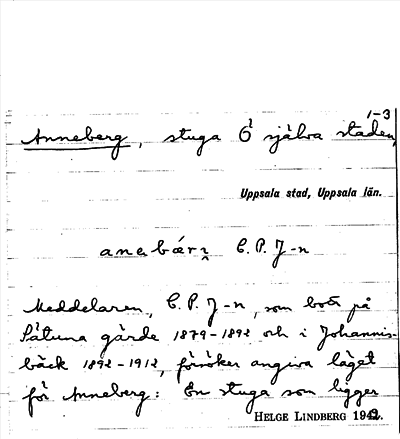 1-3
Anneberg, stuga i själva staden,
Uppsala stad, Uppsala län.
C. P. J-n
Meddelaren, C. P. J-n, som bott på
Såtuna gärde 1879-1892 och i Johannis-
bäck 1892-1912, försöker angiva läget
för Anneberg: En stuga som ligger
HELGE LINDBERG 1942.